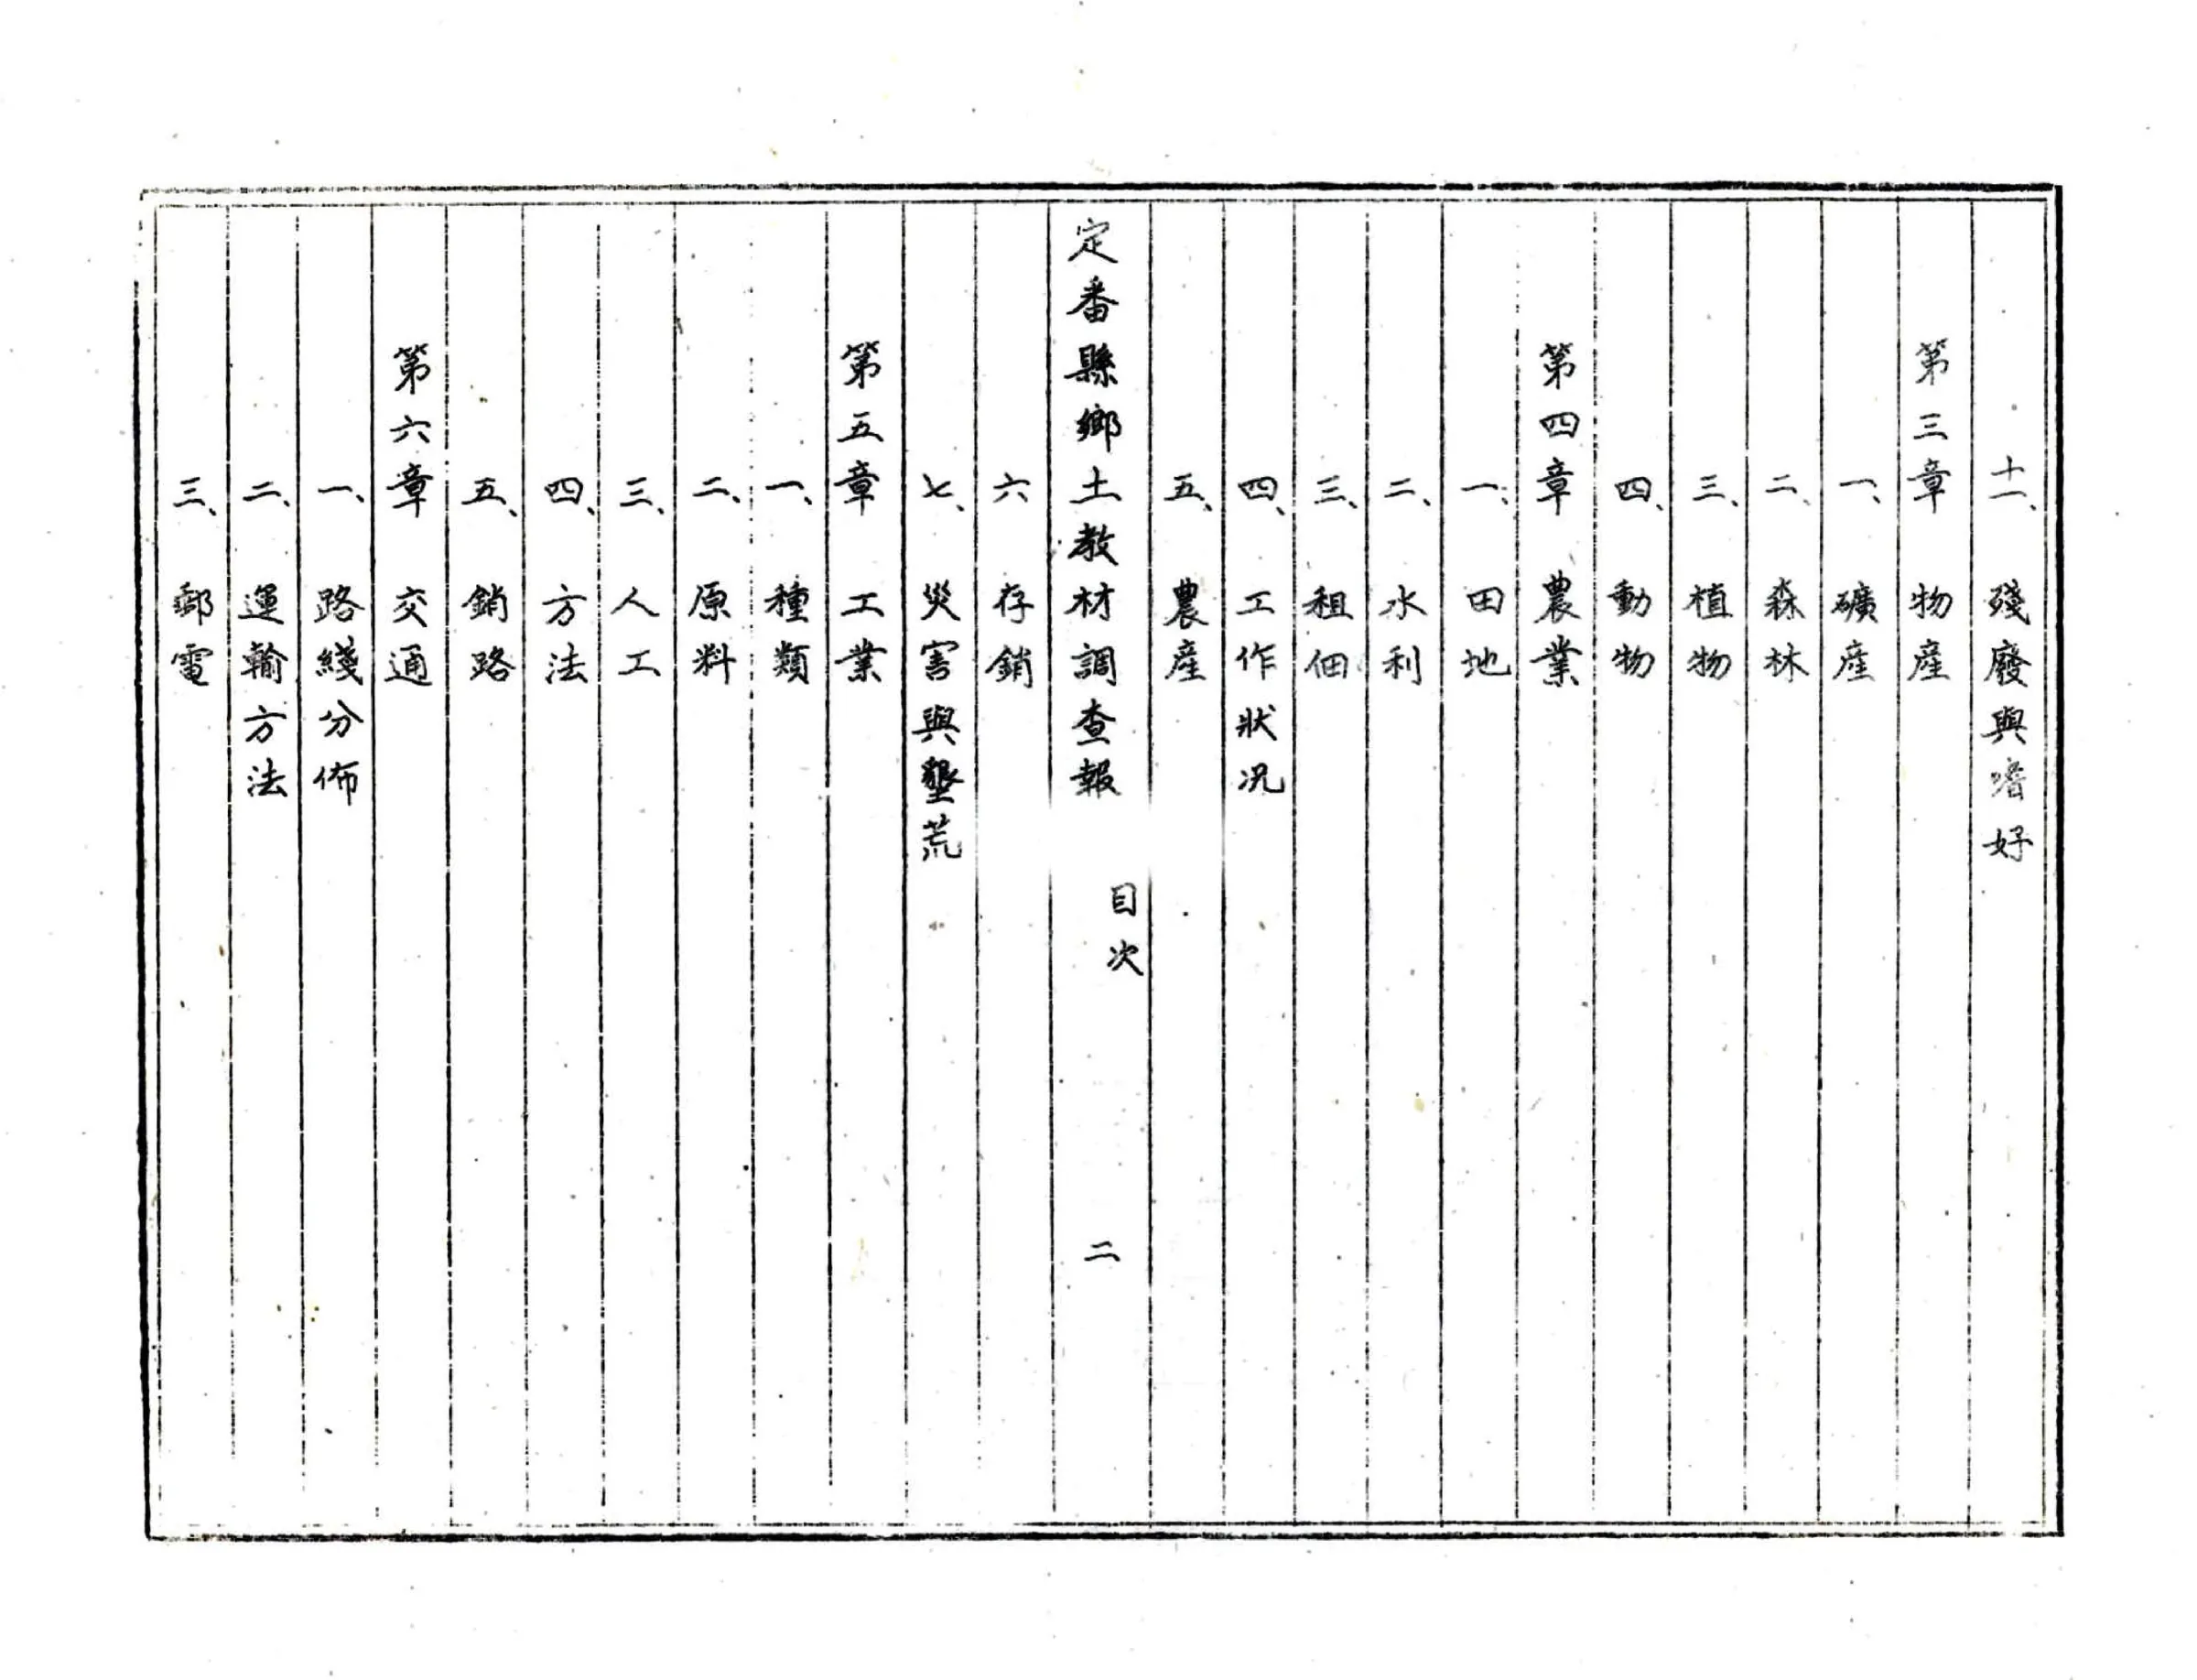 十一、殘廢與嗜好
第三章 物產
一、礦產
二、森林
三、植物
四、動物
第四章 農業
一、田地
二、水利
三、租佃
四、工作狀况
五、農產
定番縣鄉土教材調查報 目次 二
六 存銷
七、災害與墾荒
第五章 工業
一、種類
二、原料
三、人工
四、方法
五、銷路
第六章 交通
一、路綫分佈
二、運輸方法
三、郵電